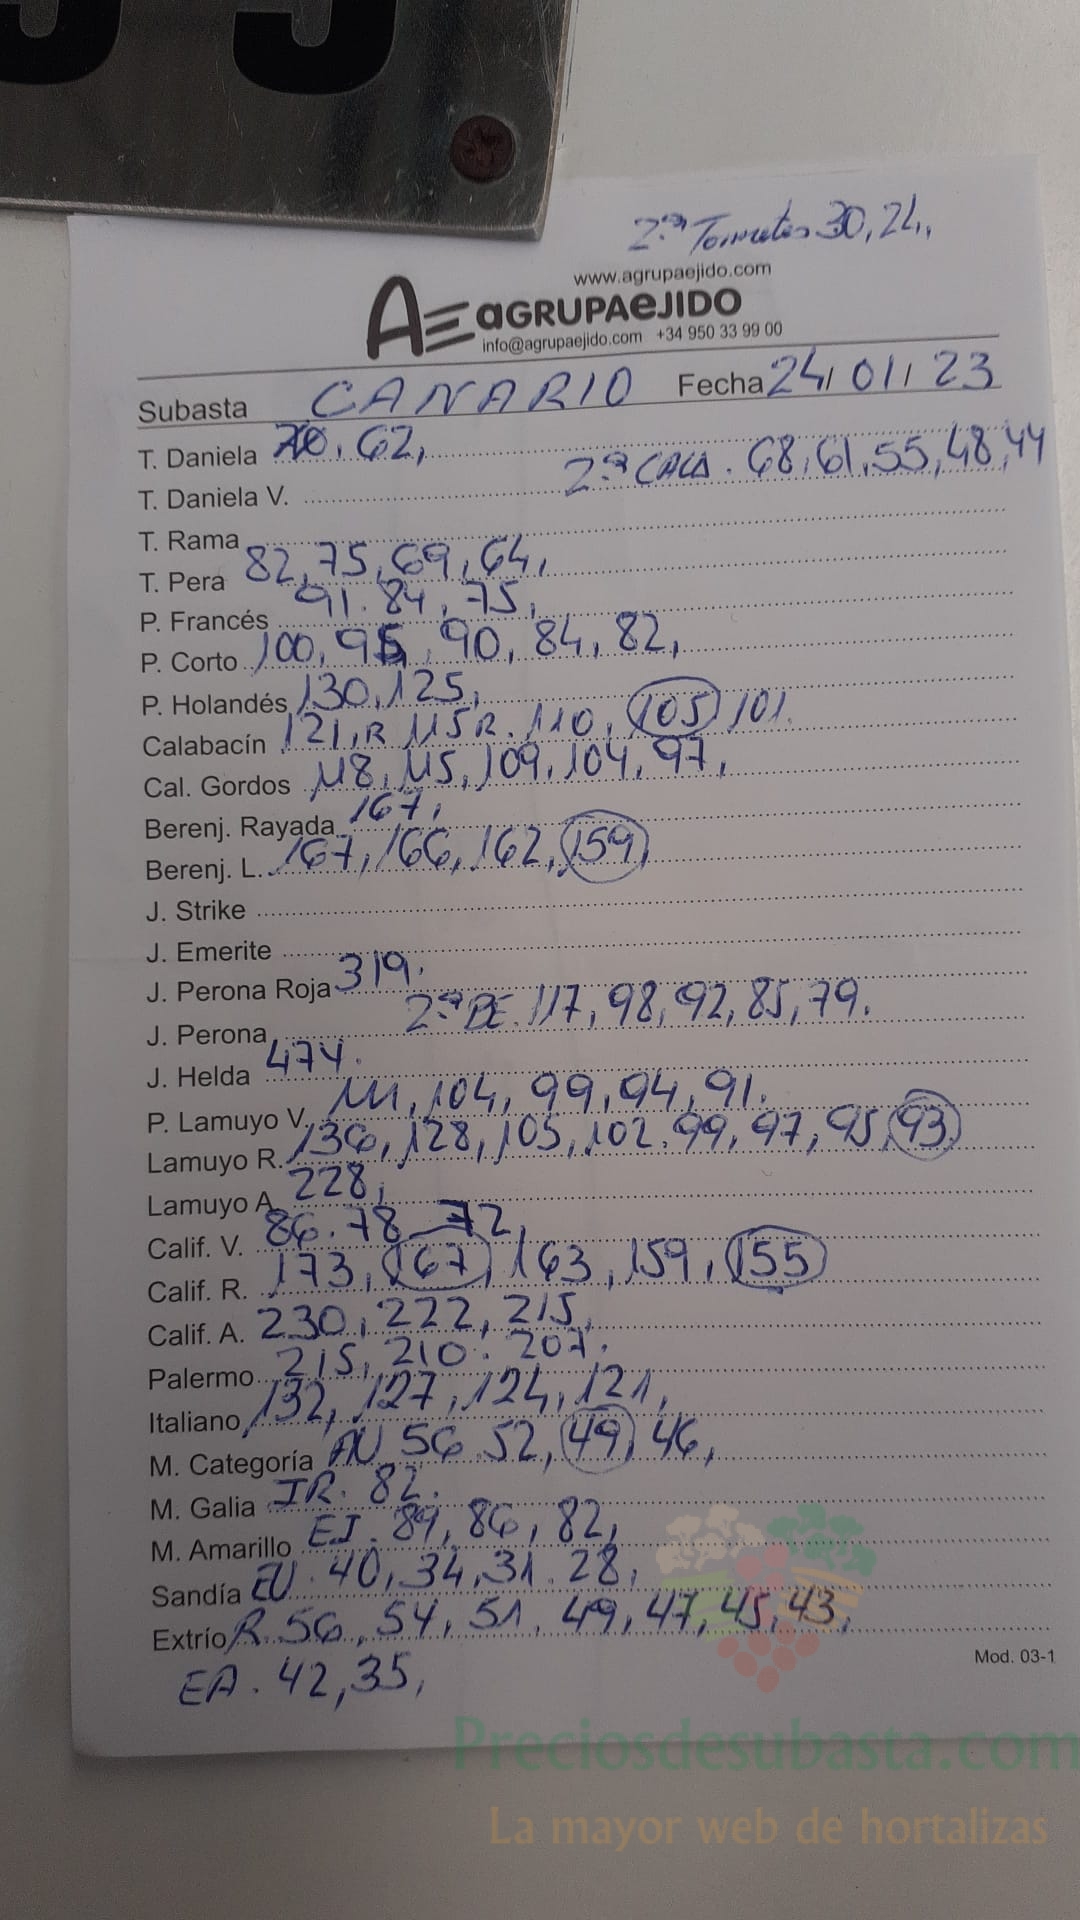 2ª Tomates 30, 24,
www.agrupaejido.com
AE aGRUPAeJIDO
info@agrupaejido.com +34 950 33 99 00
Subasta CANARIO Fecha 24/01/23
T. Daniela 70, 62,
2ª CALA. 68, 61, 55, 48, 44
T. Daniela V.
T. Rama
T. Pera 82, 75, 69, 64,
P. Francés 91. 84, 75,
P. Corto 100, 95, 90, 84, 82,
P. Holandés 130, 125,
Calabacín 121, R 115 R. 110, 105, 101.
Cal. Gordos 118, 115, 109, 104, 97,
Berenj. Rayada 167,
Berenj. L. 167, 166, 162, 159,
J. Strike
J. Emerite
J. Perona Roja 319.
2ª BE. 117, 98, 92, 85, 79.
J. Perona
J. Helda 474.
P. Lamuyo V. 111, 104, 99, 94, 91.
Lamuyo R. 136, 128, 105, 102. 99, 97, 95, 93,
Lamuyo A 228,
Calif. V. 86. 78 72,
Calif. R. 173, 167, 163, 159, 155
Calif. A. 230, 222, 215,
Palermo 215, 210. 207.
Italiano 132, 127, 124, 121,
M. Categoría AU 56 52, 49, 46,
M. Galia IR. 82.
M. Amarillo EJ. 89, 86, 82,
Sandía EU. 40, 34, 31. 28,
Extrío R. 56, 54, 51. 49, 47, 45, 43,
Mod. 03-1
EA. 42, 35,
Preciosdesubasta.com
La mayor web de hortalizas